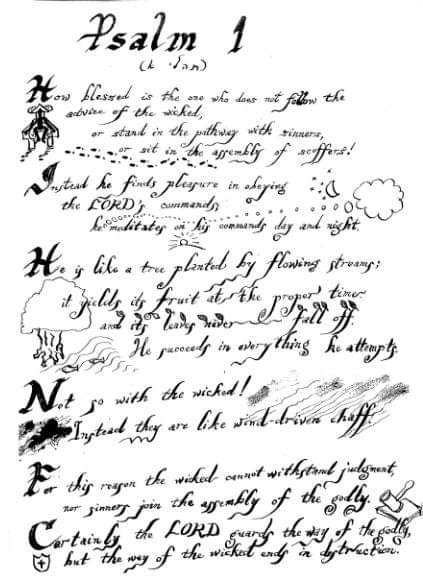 Psalm 1
How blessed is the one who does not follow the
advice of the wicked,
or stand in the pathway with sinners,
or sit in the assembly of scoffers!
Instead he finds pleasure in obeying
the LORD's commands;
he meditates on his commands day and night.
He is like a tree planted by flowing streams;
it yields its fruit at the proper time
and its leaves never fall off.
He succeeds in everything he attempts.
Not so with the wicked!
Instead they are like wind-driven chaff.
For this reason the wicked cannot withstand judgment,
nor sinners join the assembly of the godly.
Certainly the LORD guards the way of the godly,
but the way of the wicked ends in dystruction.